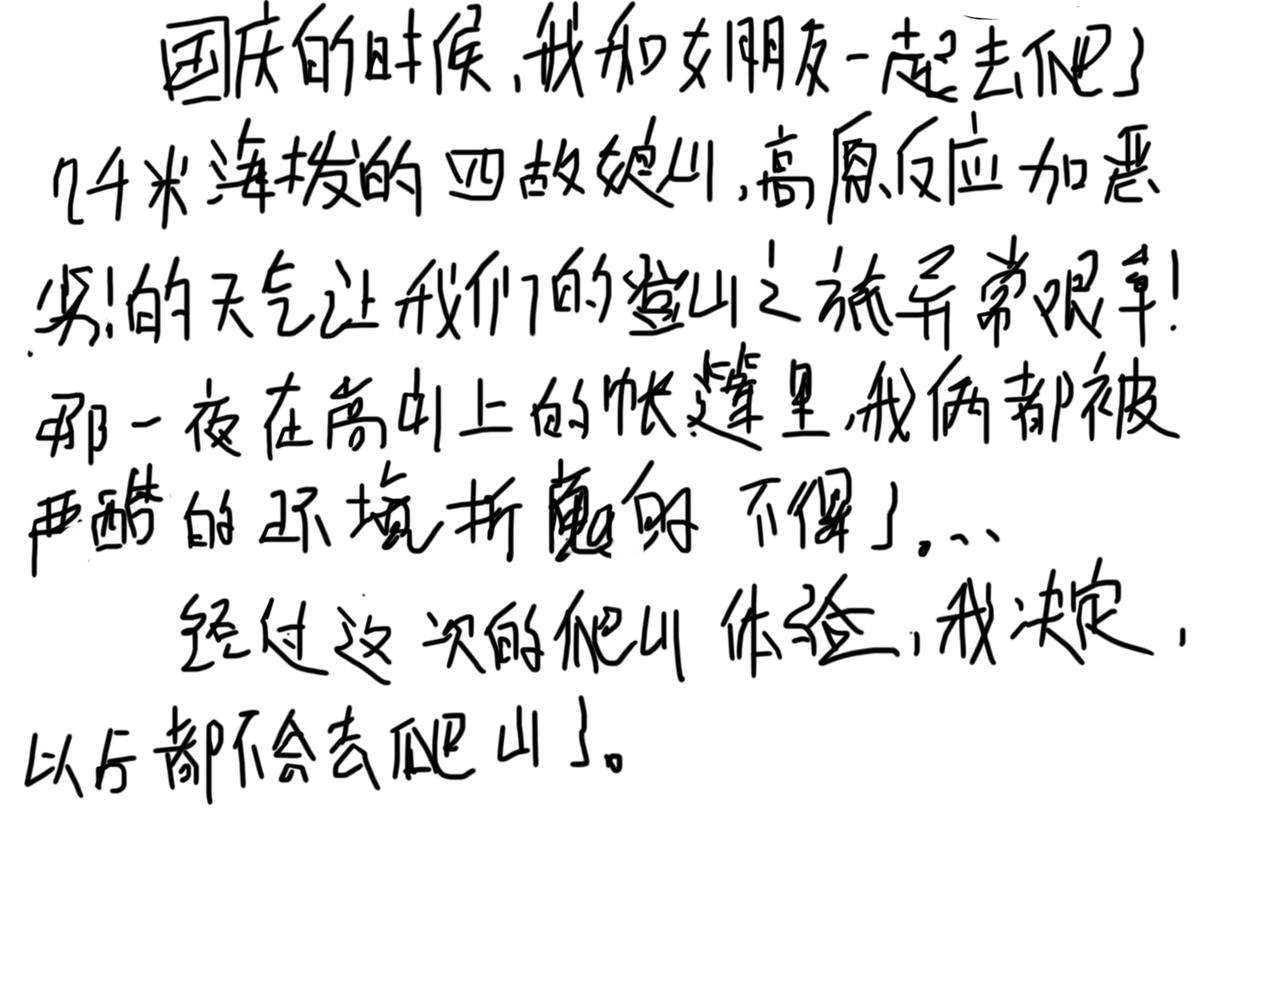 国庆的时候,我和女朋友一起去爬了
几千米海拔的四故娘山,高原反应加恶
劣的天气让我们的登山之旅异常艰辛!
那一夜在高山上的帐篷里,我俩都被
严酷的环境折魔的不得了。..
经过这次的爬山体验,我决定,
以后都不会去爬山了。